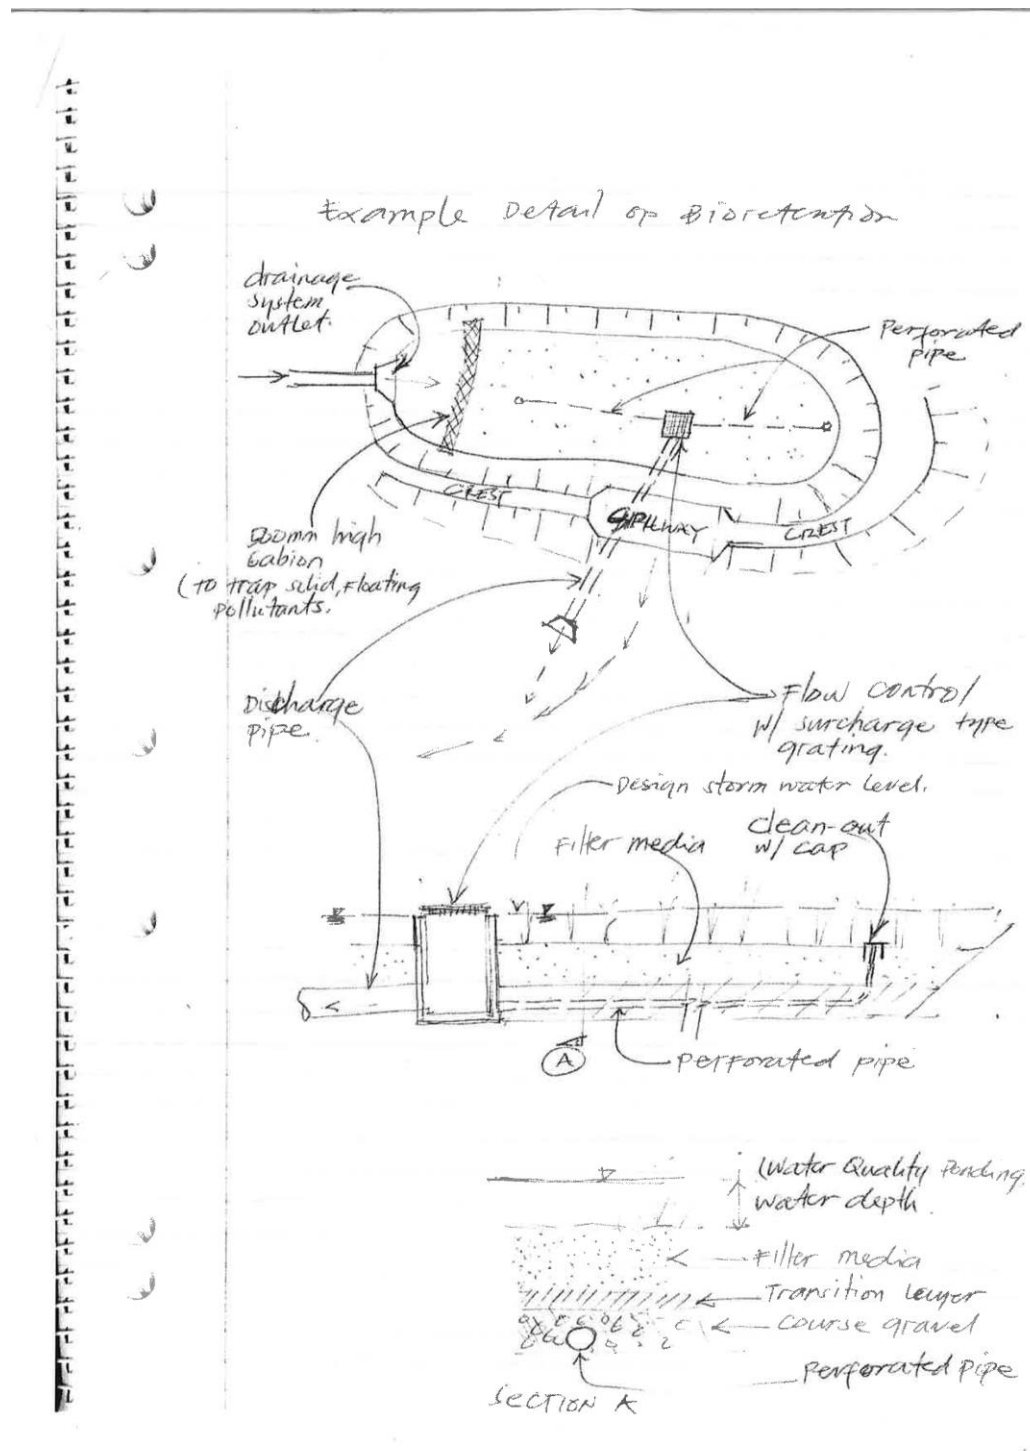 Example Detail of Bioretention
drainage
system
outlet.
Perforated
pipe
CREST
SPILLWAY
CREST
500mm high
Gabion
(to trap solid, floating
pollutants.
Discharge
pipe.
Flow control
w/ surcharge type
grating.
Design storm water level.
Filter media
clean-out
w/ cap
A
perforated pipe
(Water Quality Ponding
water depth.
Filter media
Transition layer
course gravel
perforated pipe
SECTION A